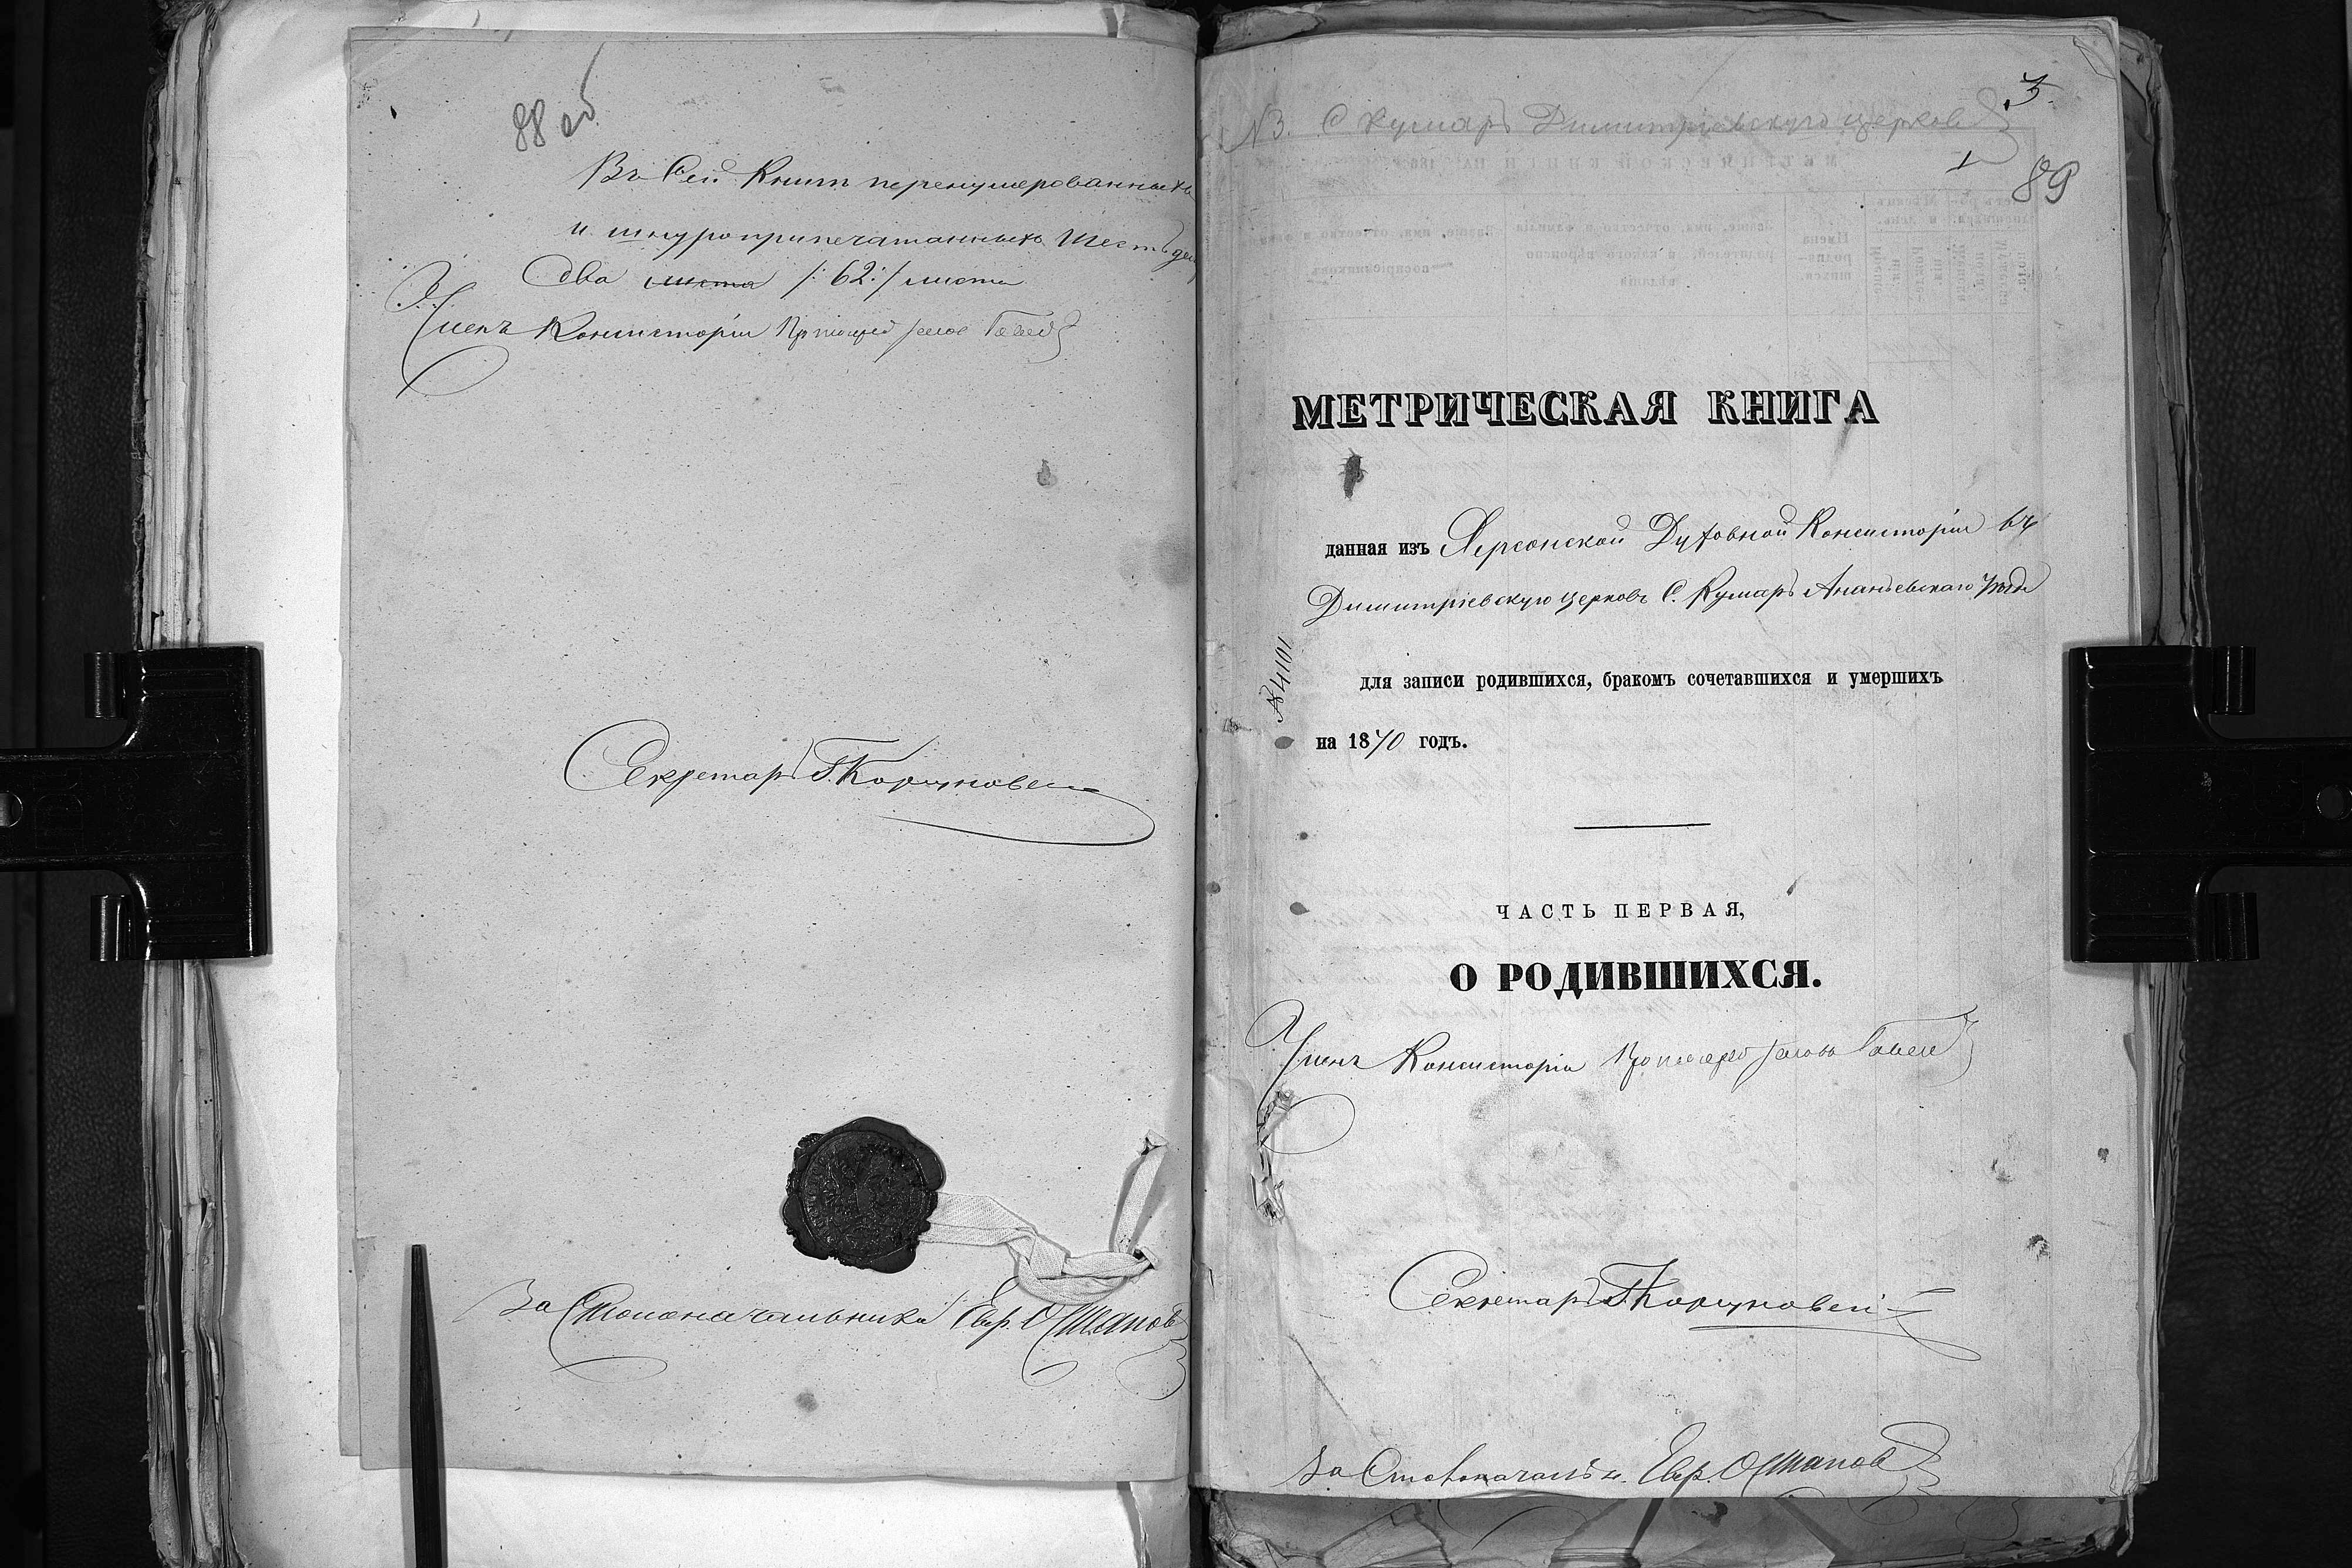 88 об
Въ Сей Книгѣ перенумерованныхъ
и шнуроприпечатанныхъ шестьде
два листа /: 62 :/ листа
Членъ Консисторіи
Секретарь
За Столоначальника Евр. Остапов
3.
N 3. С Кумаръ Димитріевскую церковь
1
89
МЕТРИЧЕСКАЯ КНИГА
данная изъ Херсонской Духовной Консисторіи въ
Димитріевскую церковь С. Кумаръ Ананьевскаго уѣзда
№ 4101
для записи родившихся, бракомъ сочетавшихся и умершихъ
на 1870 годъ.
ЧАСТЬ ПЕРВАЯ,
О РОДИВШИХСЯ.
Членъ Консисторіи
Секретарь
За Столоначальн. Евр. Остапов